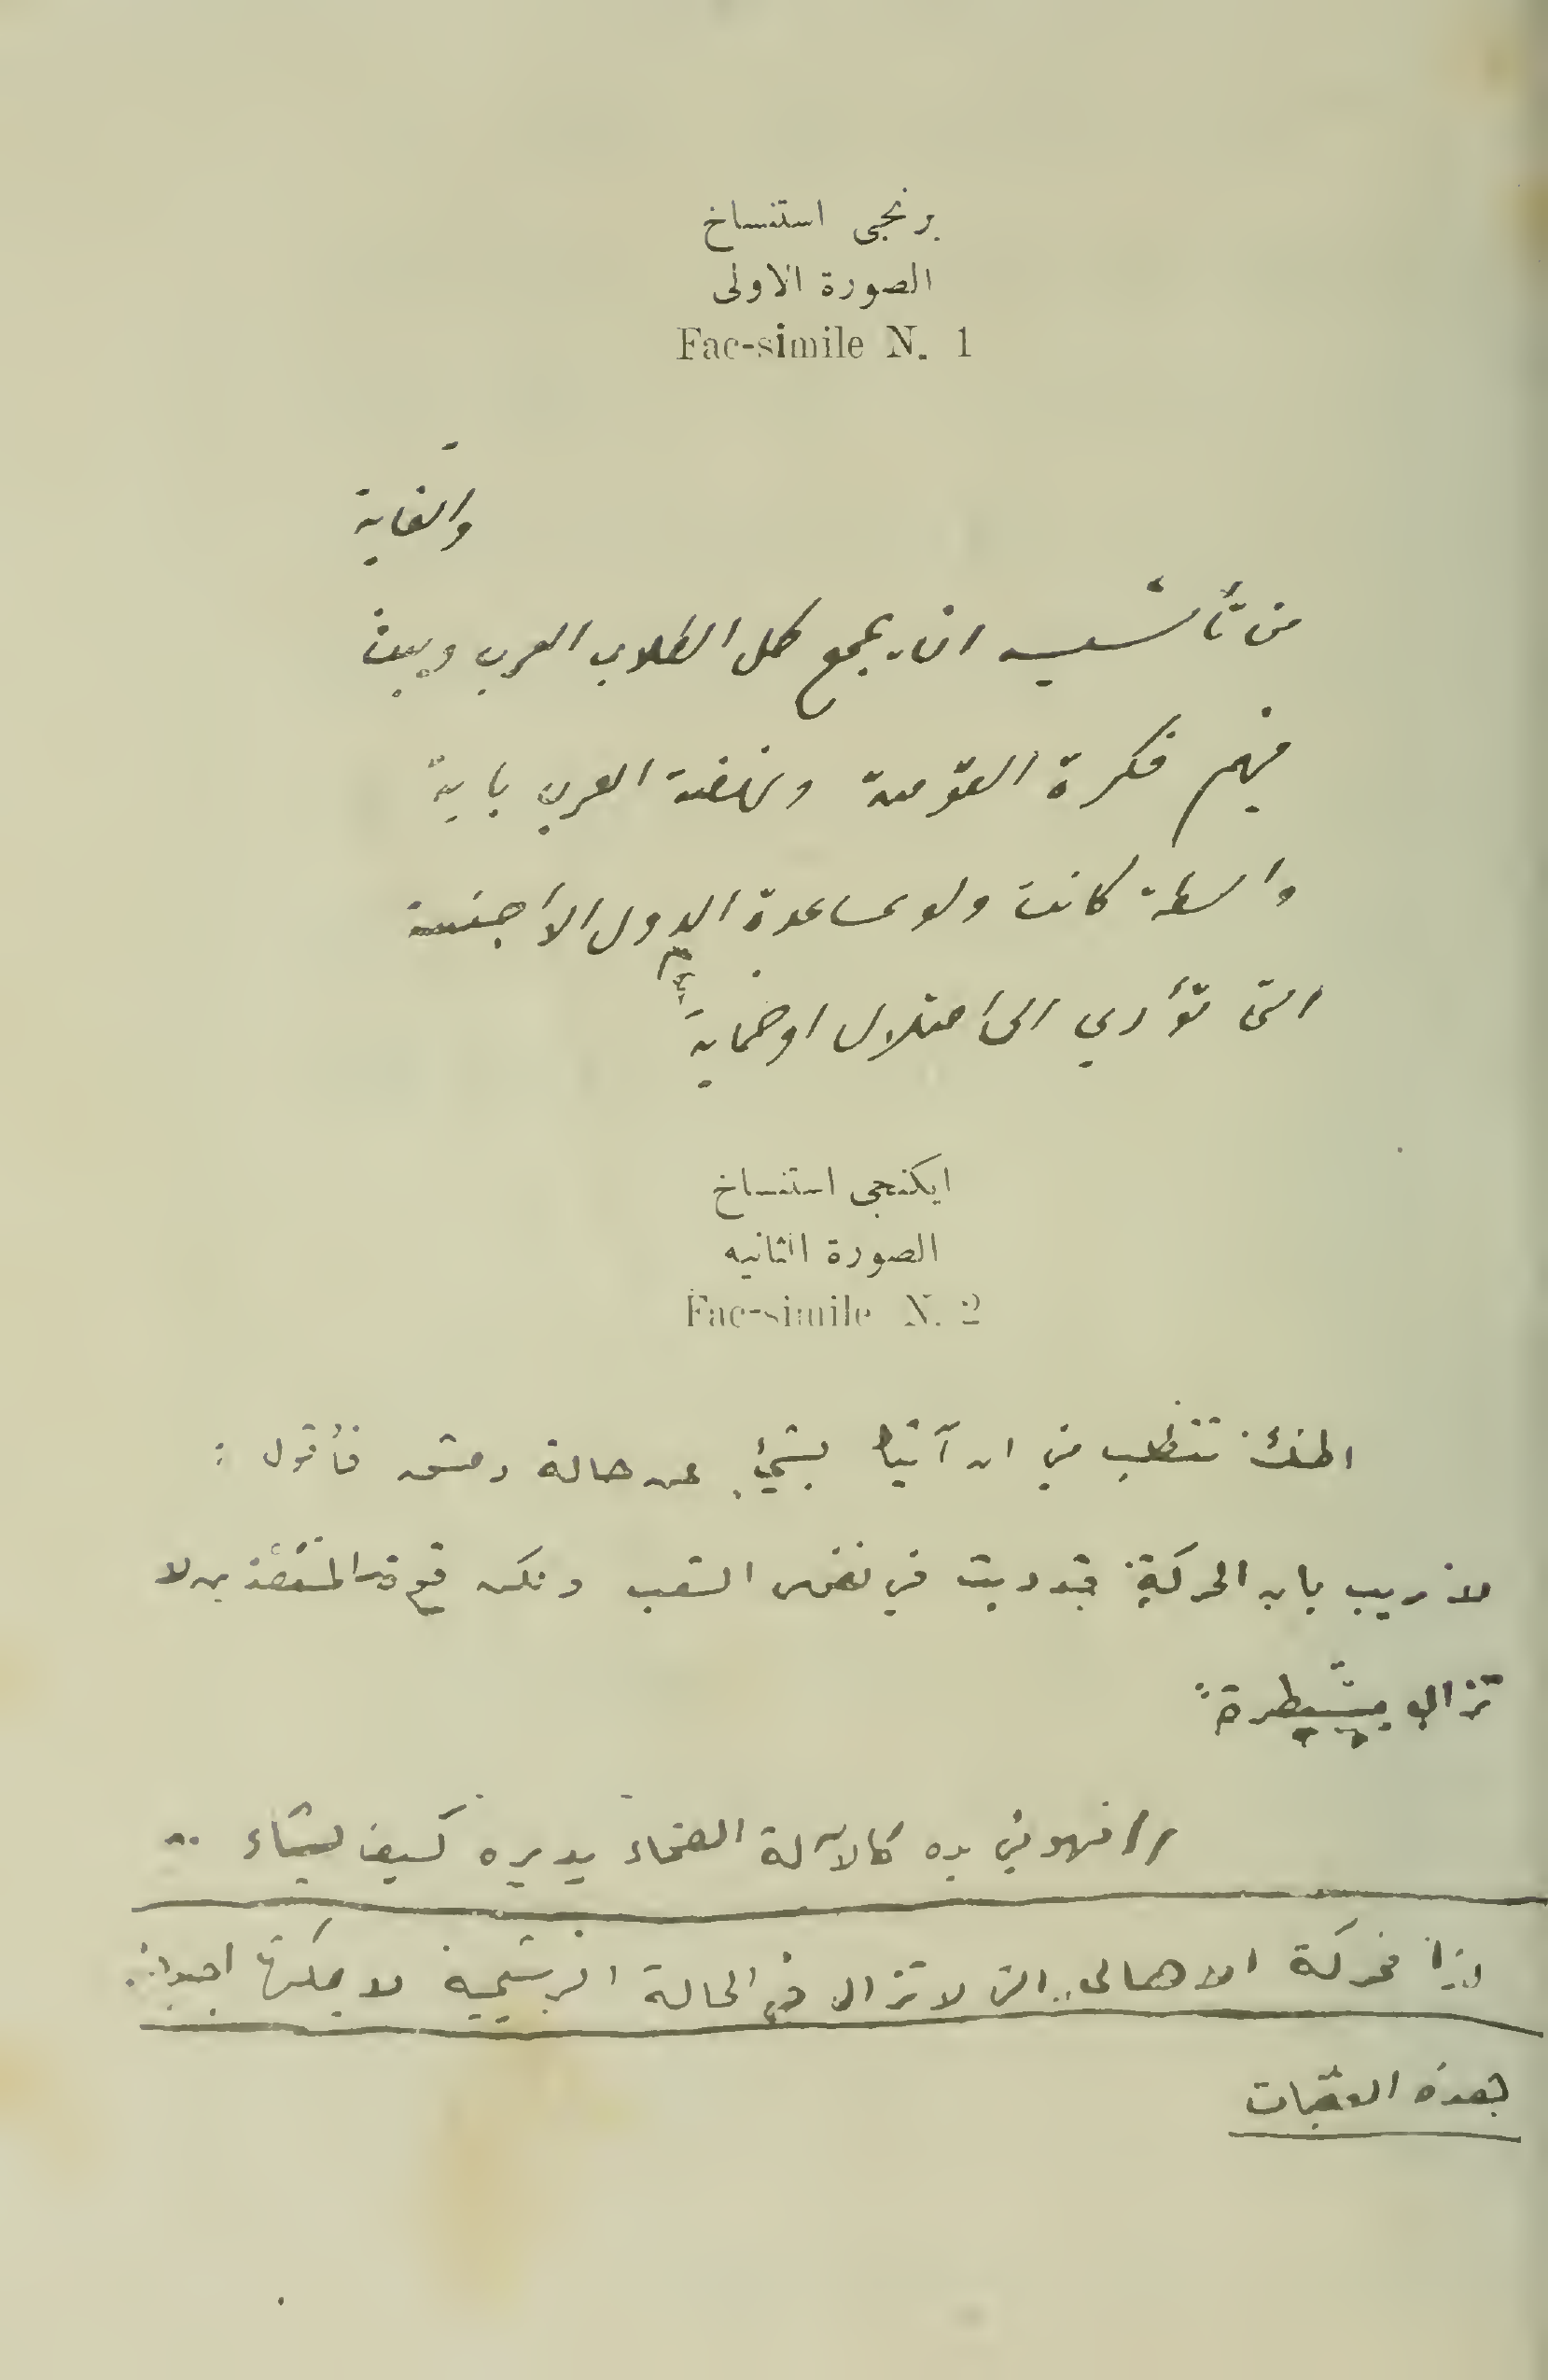 برنجى استنساخ
الصورة الاولى
Fac-simile N. 1
والغاية
من تأسيسه ان يجمع كل الطلاب العرب ويبث
فيهم فكرة القوّمية ونهضة العرب بايّة
واسطة كانت ولو بمساعدة الدول الأجنبية
التى تؤدي الى احتلال او حماية
ايكنجى استنساخ
الصورة الثانيه
Fac-simile N. 2
اظنك تتطلب مني ان آتيك بشيء عن حالة دمشق فأقول :
لا ريب بان الحركة قد دبت في نفس الشعب ولكن قوة المتنفذين لا
تزال مسيطرة
فهو في يده كالآلة الصماء يديره كيف يشاء ..
اذاً فحركة الاهالى التى لا تزال في الحالة الرشيمية لا يمكنها
بهذه العقبات